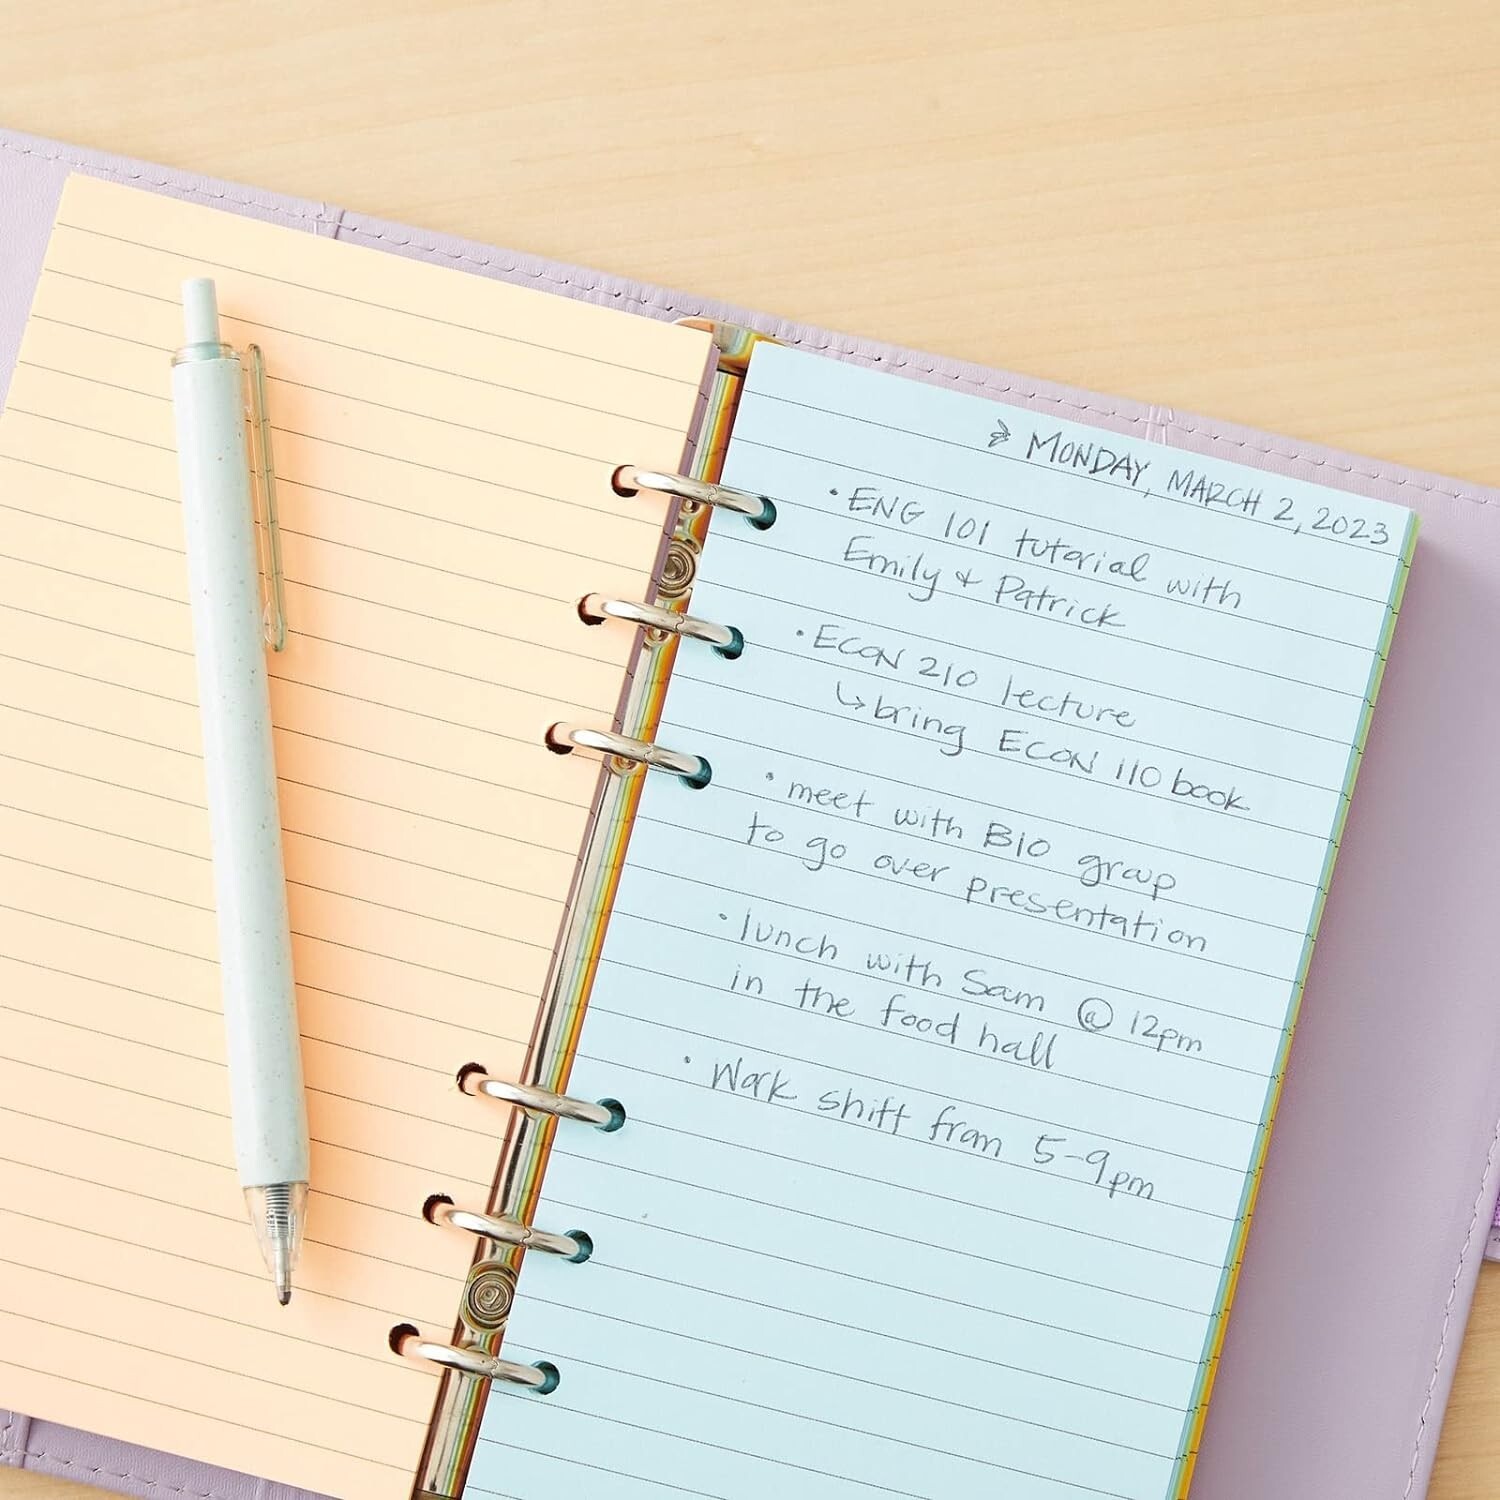 → MONDAY, MARCH 2, 2023
• ENG 101 tutorial with
Emily + Patrick
• ECON 210 lecture
↳ bring ECON 110 book
• meet with BIO group
to go over presentation
• lunch with Sam @ 12pm
in the food hall
• Work shift from 5-9pm